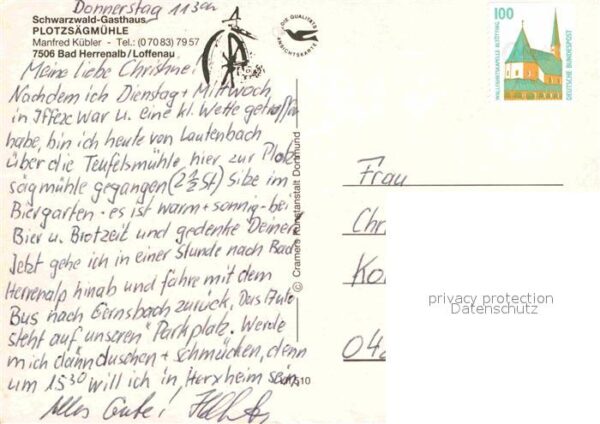 Donnerstag 11³⁰ʰ
Schwarzwald-Gasthaus
PLOTZSÄGMÜHLE
Manfred Kübler - Tel.: (0 70 83) 79 57
7506 Bad Herrenalb / Loffenau
Meine liebe Christine!
Nachdem ich Dienstag + Mittwoch
in Iffeze war u. eine kl. Wette getroffen
habe, bin ich heute von Lautenbach
über die Teufelsmühle hier zur Plotz-
sägmühle gegangen (2½ St) Sitze im
Biergarten - es ist warm + sonnig - bei
Bier u. Brotzeit und gedenke Deiner
Jetzt gehe ich in einer Stunde nach Bad
Herrenalp hinab und fahre mit dem
Bus nach Gernsbach zurück. Das Auto
steht auf unseren "Parkplatz. Werde
mich dann duschen + schmücken, denn
um 15³⁰ will ich in Herxheim sein.
Alles Gute!
DIE QUALITÄTS
ANSICHTSKARTE
© Cramers Kunstanstalt Dortmund
100
WALLFAHRTSKAPELLE ALTÖTTING
DEUTSCHE BUNDESPOST
Frau
Chr
Ko
04
privacy protection
Datenschutz